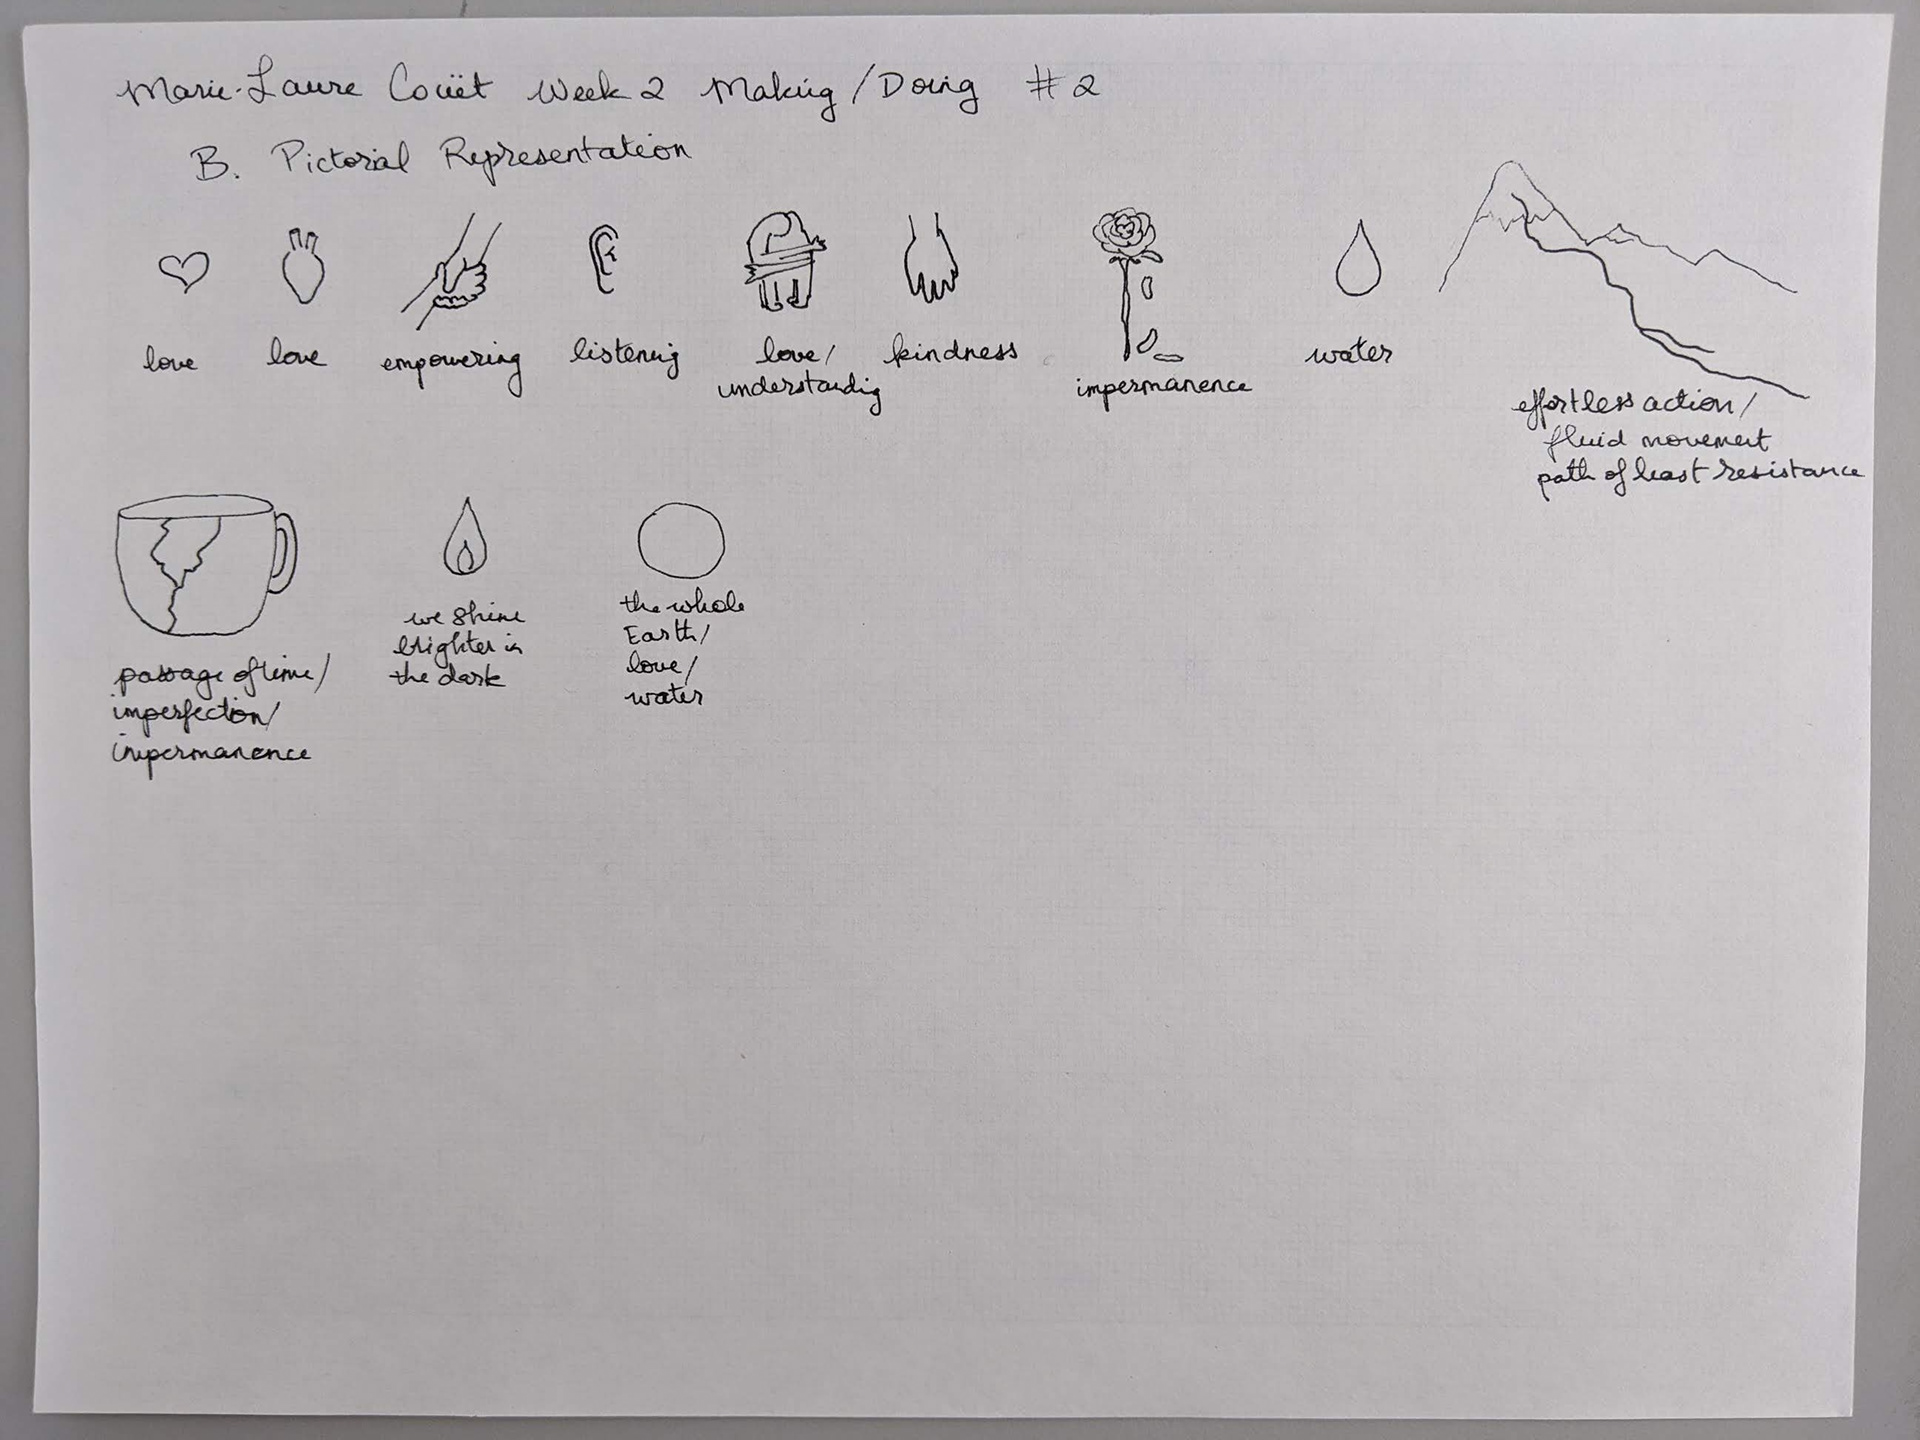 Marie-Laure Couët Week 2 Making/Doing #2
B. Pictorial Representation
love
love
empowering
listening
love/
understanding
kindness
impermanence
water
effortless action/
fluid movement
path of least resistance
passage of time/
imperfection/
impermanence
we shine
brighter in
the dark
the whole
Earth/
love/
water